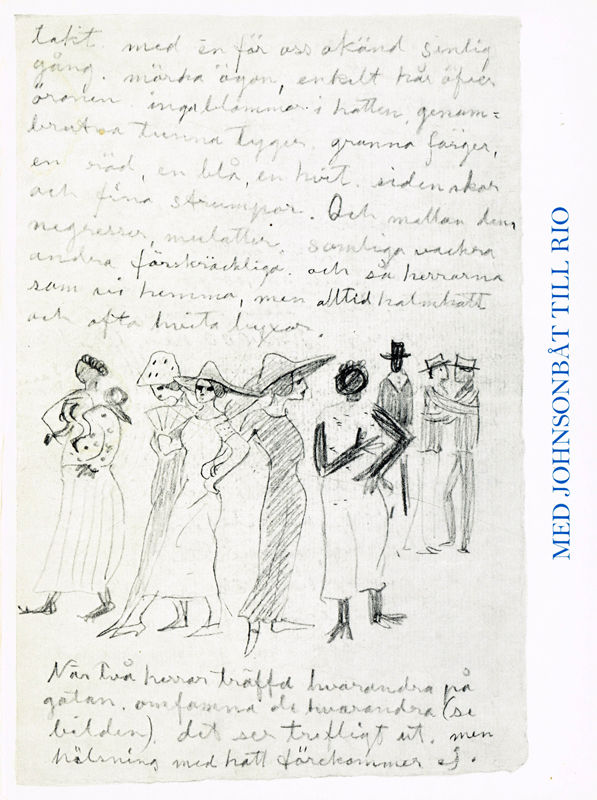 takt. med en för oss okänd sinlig
gång. mörka ögon, enkelt hår öfver
öronen. inga blommor i hatten, genom=
brutna tunna tyger. granna färger,
en röd, en blå, en hvit. siden skor
och fina strumpor. Och mellan dem,
negresser, mulatter, somliga vackra
andra förskräckliga. och så herrarna
som vi hemma, men alltid halmhatt
och ofta hvita byxor.
När två herrar träffa hvarandra på
gatan. omfamna de hvarandra (se
bilden). det ser trefligt ut. men
hälsning med hatt förekommer ej.
MED JOHNSONBÅT TILL RIO